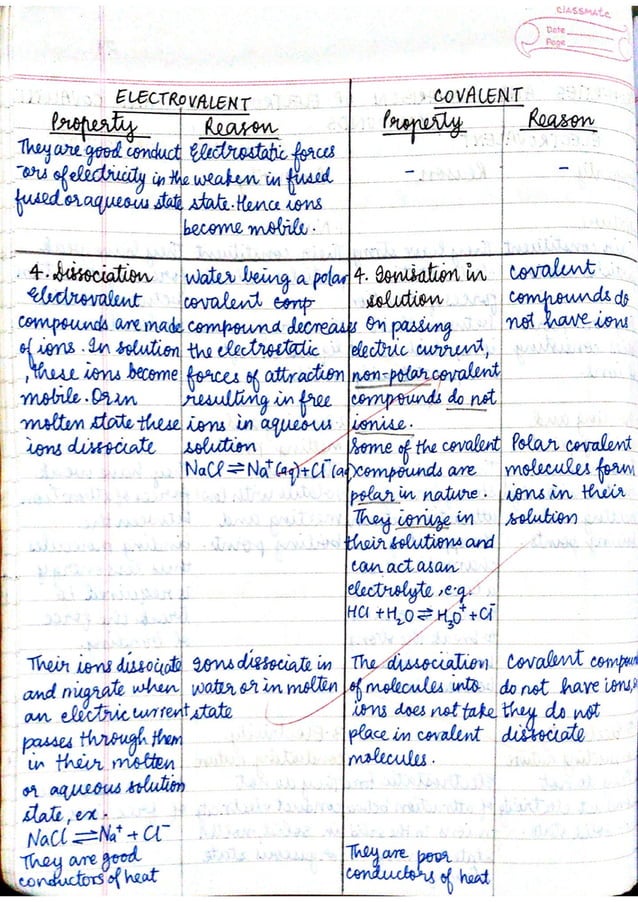 CLASSMATE
Date
Page
ELECTROVALENT
Property
Reason
They are good conduct
-ors of electricity in the
fused or aqueous state
Electrostatic forces
weaken in fused
state. Hence ions
become mobile.
COVALENT
Property
Reason
-
-
4. Dissociation
Electrovalent
compounds are made
of ions. In solution
, these ions become
mobile. Or in
molten state these
ions dissociate
Water being a polar
covalent comp
compound decreases
the electrostatic
forces of attraction
resulting in free
ions in aqueous
solution
NaCl ⇌ Na⁺(aq) + Cl⁻(aq)
4. Ionisation in
solution
On passing
electric current,
non-polar covalent
compounds do not
ionise.
Covalent
compounds do
not have ions
Some of the covalent
compounds are
polar in nature.
They ionize in
their solutions and
can act as an
electrolyte, e.g.
HCl + H₂O ⇌ H₃O⁺ + Cl⁻
Polar covalent
molecules form
ions in their
solution
Their ions dissociate
and migrate when
an electric current
passes through them
in their molten
or aqueous solution
state, ex.
NaCl ⇌ Na⁺ + Cl⁻
They are good
conductors of heat
Ions dissociate in
water or in molten
state
The dissociation
of molecules into
ions does not take
place in covalent
molecules.
They are poor
conductors of heat
Covalent compoun
do not have ions,
they do not
dissociate